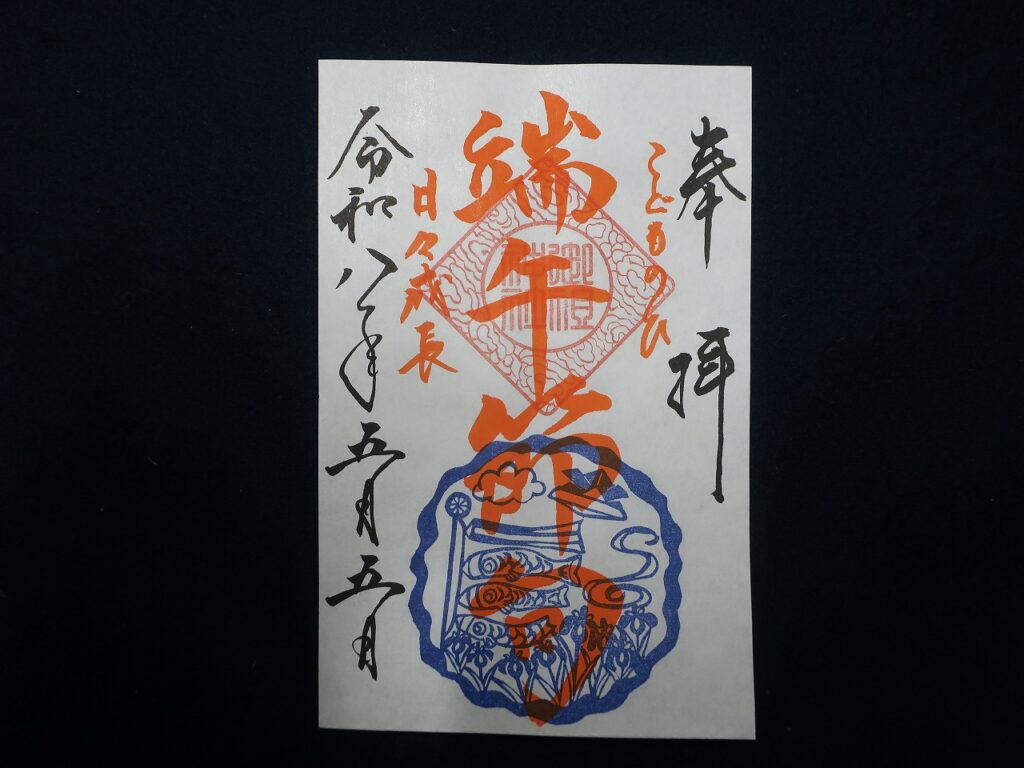 奉拝
こどものひ
端午節句
日々成長
令和八年五月五日